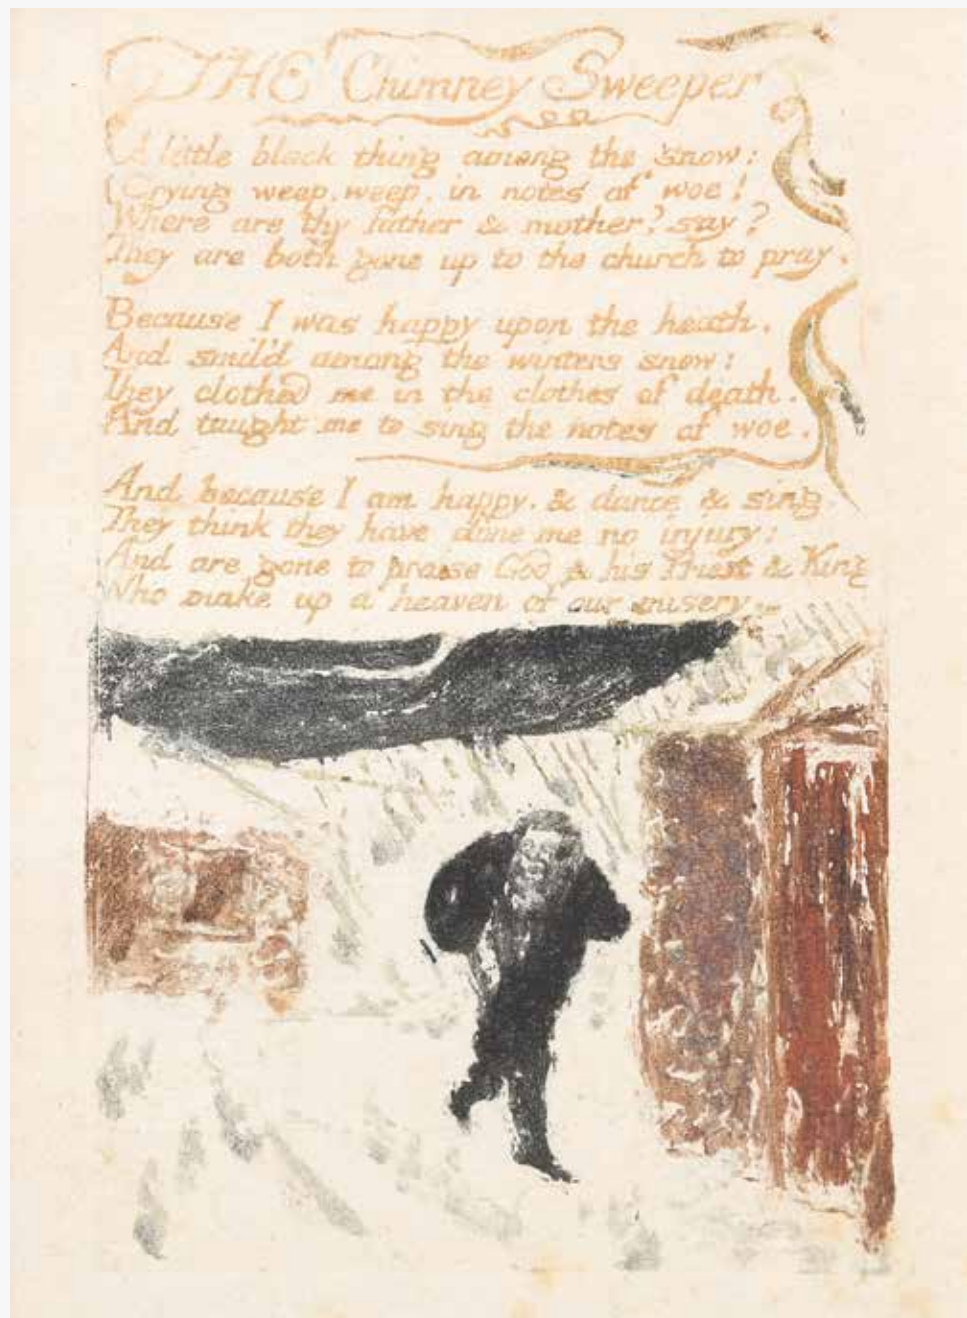 THE Chimney Sweeper
A little black thing among the snow:
Crying weep, weep, in notes of woe!
Where are thy father & mother? say?
They are both gone up to the church to pray.
Because I was happy upon the heath,
And smil'd among the winters snow:
They clothed me in the clothes of death.
And taught me to sing the notes of woe.
And because I am happy, & dance & sing
They think they have done me no injury:
And are gone to praise God & his Priest & King
Who make up a heaven of our misery.